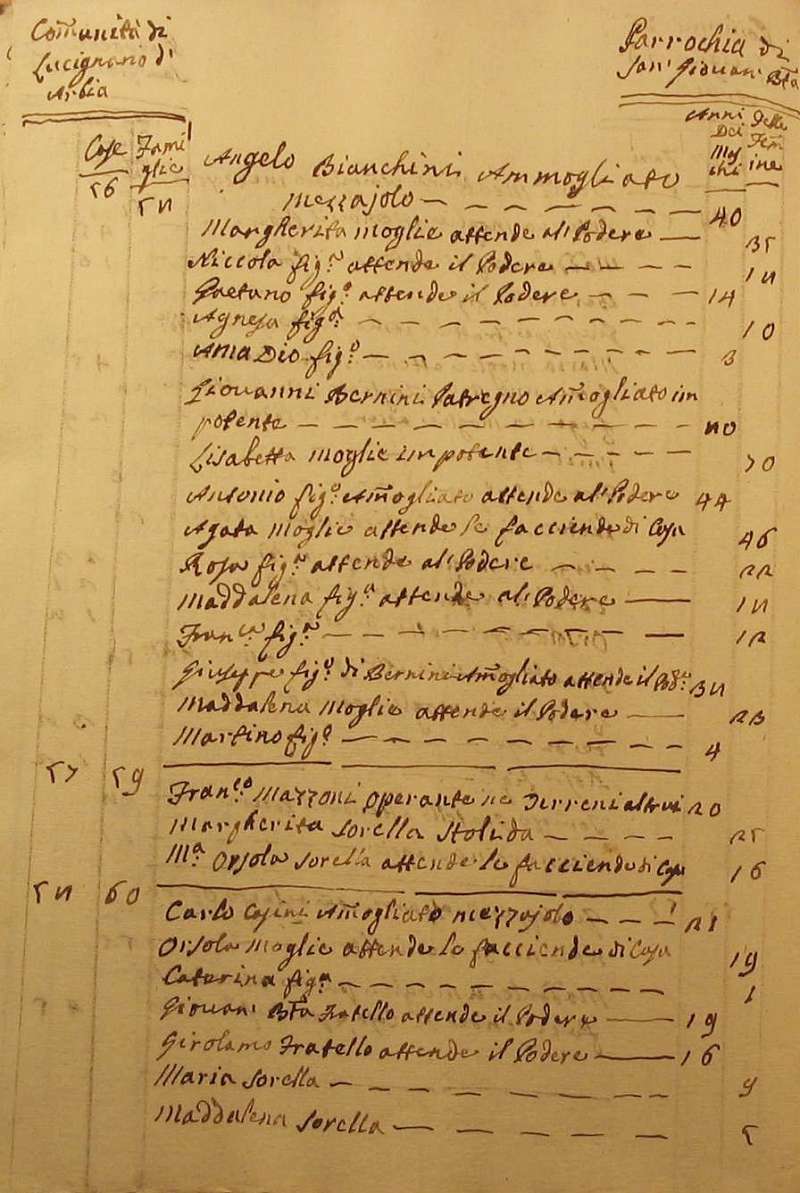 Comunità di
Lucignano d'
Arbia
Parrochia di
San Giovan Bta
Case
56
Fami
glie
58
Anni
Dei
Mas
chi
delle
Fem
ine
Angelo Bianchini Ammogliato
Mezzajolo — 40
Margherita moglie attende al Podere — 35
Niccola figa attende il Podere — 18
Gaetano figo attende il Podere — 14
Agnesa figa — 10
Amadio figo — 3
Giovanni Bernini Patregno Amogliato im
potente — 80
Lisabetta moglie impotente — 70
Antonio figo Amogliato attende al Podere 44
Agata moglie attende le facciende di Casa 46
Rosa figa attende al Podere — 22
Maddalena figa attende al Podere — 18
Franca figa — 12
Giuseppe figo di Bernini Amogliato attende il Pode 38
Maddalena Moglie attende il Podere — 23
Martino figo — 4
57 59
Franco Mazzoni operante ne Terreni altrui 20
Margherita Sorella Stolida — 25
Ma Orsola Sorella attende le facciende di Casa 16
58 60
Carlo Casini Amogliato mezzajolo — 21
Orsola Moglie attende le facciende di Casa 19
Caterina figa — 1
Giovan Bta Fratello attende il Podere — 19
Girolamo Fratello attende il Podere — 16
Maria Sorella — 9
Maddalena Sorella — 5